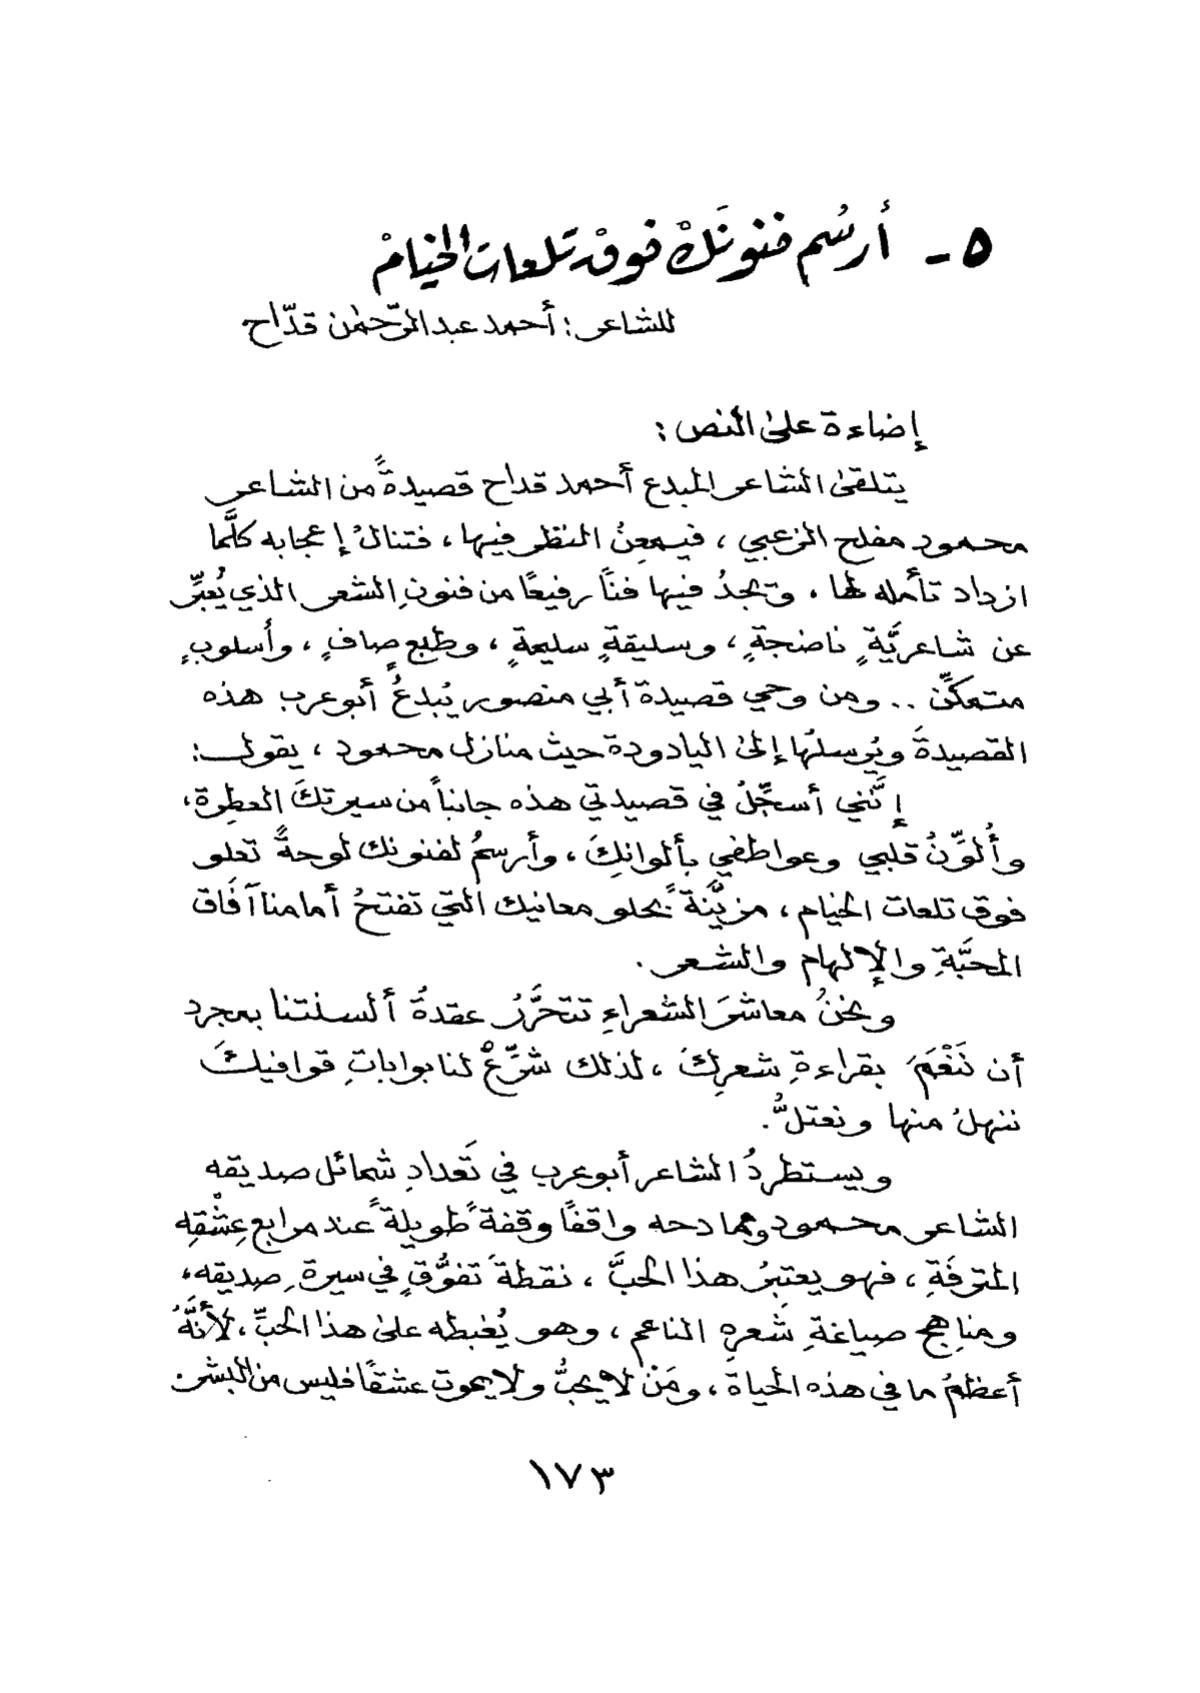 ٥ - أرسُم فنونَكْ فوقْ تلعات الخيامْ
للشاعر : أحمد عبدالرّحمٰن قدّاح
إضاءة علىٰ النص :
يتلقىٰ الشاعر المبدع أحمد قداح قصيدةً من الشاعر
محمود مفلح الزعبي ، فيمعِنُ النظر فيها ، فتنالُ إعجابه كلَّما
ازداد تأمله لها ، ويجدُ فيها فنًا رفيعًا من فنونِ الشعر الذي يُعبِّر
عن شاعريَّةٍ ناضجةٍ ، وسليقةٍ سليمةٍ ، وطبعٍ صافٍ ، وأسلوبٍ
متمكِّن .. ومن وحي قصيدة أبي منصور يُبدعُ أبو عرب هذه
القصيدةَ ويُرسلُها إلىٰ اليادودة حيث منازل محمود ، يقول :
إنَّني أسجِّلُ في قصيدتي هذه جانباً من سيرتكَ العطِرة ،
وأُلوِّنُ قلبي وعواطفي بألوانِكَ ، وأرسمُ لفنونك لوحةً تعلو
فوق تلعات الخيام ، مزيَّنةً بحلو معانيك التي تفتحُ أمامنا آفَاق
المحبَّةِ والإلهام والشعر .
ونحنُ معاشرَ الشعراءِ تتحَرَّرُ عقدةُ ألسنتنا بمجرد
أن نَنْعَمَ بقراءةِ شعرِكَ ، لذلك شرِّعْ لنا بواباتِ قوافيكَ
ننهلُ منها ونعتلُّ .
ويستطردُ الشاعر أبو عرب في تَعدادِ شمائل صديقه
الشاعر محمود ومادحه واقفًا وقفةً طويلةً عند مرابع عِشْقِه
المترفَةِ ، فهو يعتبرُ هذا الحبَّ ، نقطةَ تفوُّقٍ في سيرةِ صديقه ،
ومناهج صياغةِ شعرهِ الناعم ، وهو يُغبطه علىٰ هذا الحبِّ ، لأنَّهُ
أعظمُ ما في هذه الحياة ، ومَنْ لا يحبُّ ولا يموت عشقًا فليس من البشر
١٧٣